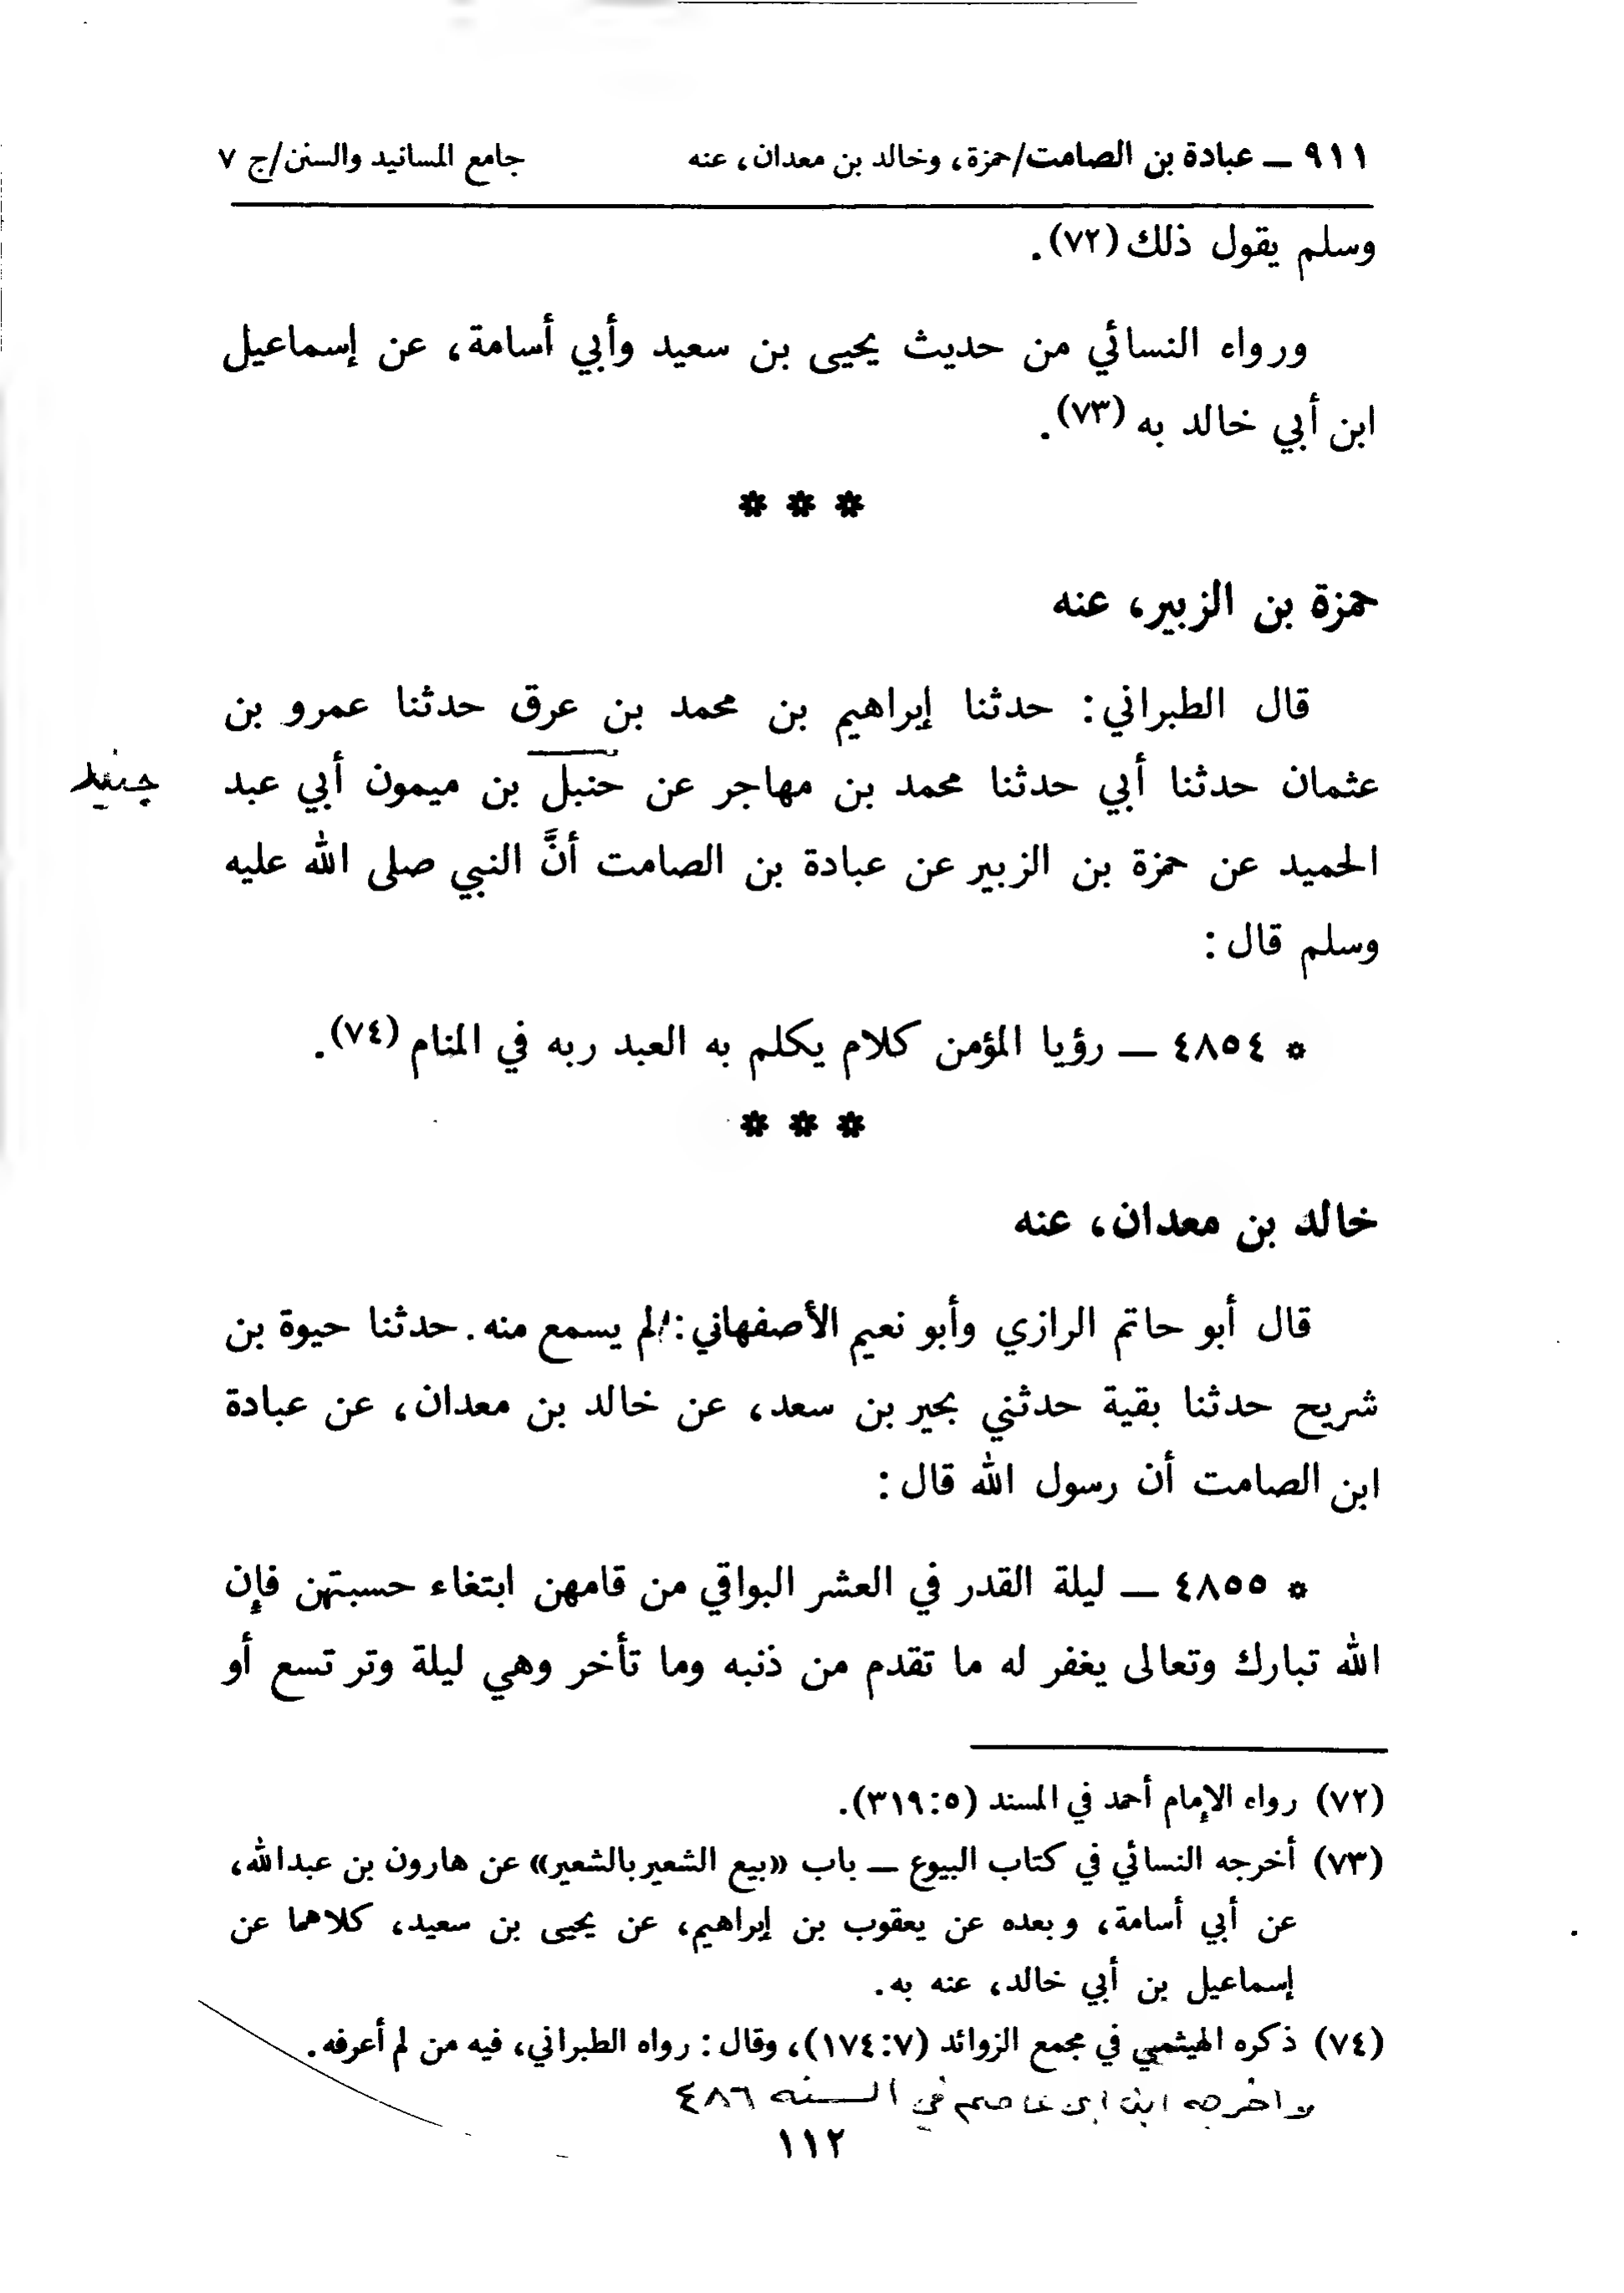 ٩١١ ــ عبادة بن الصامت/حمزة، وخالد بن معدان، عنه جامع المسانيد والسنن/ج ٧
وسلم يقول ذلك (٧٢).
ورواه النسائي من حديث يحيى بن سعيد وأبي أسامة، عن إسماعيل
ابن أبي خالد به (٧٣).
* * *
حمزة بن الزبير، عنه
قال الطبراني: حدثنا إبراهيم بن محمد بن عرق حدثنا عمرو بن
عثمان حدثنا أبي حدثنا محمد بن مهاجر عن حنبل بن ميمون أبي عبد
جنيد
الحميد عن حمزة بن الزبير عن عبادة بن الصامت أنَّ النبي صلى الله عليه
وسلم قال:
* ٤٨٥٤ ــ رؤيا المؤمن كلام يكلم به العبد ربه في المنام (٧٤).
* * *
خالد بن معدان، عنه
قال أبو حاتم الرازي وأبو نعيم الأصفهاني: لم يسمع منه. حدثنا حيوة بن
شريح حدثنا بقية حدثني بحير بن سعد، عن خالد بن معدان، عن عبادة
ابن الصامت أن رسول الله قال:
* ٤٨٥٥ ــ ليلة القدر في العشر البواقي من قامهن ابتغاء حسبتهن فإن
الله تبارك وتعالى يغفر له ما تقدم من ذنبه وما تأخر وهي ليلة وتر تسع أو
(٧٢) رواه الإمام أحمد في المسند (٣١٩:٥).
(٧٣) أخرجه النسائي في كتاب البيوع ــ باب «بيع الشعير بالشعير» عن هارون بن عبدالله،
عن أبي أسامة، وبعده عن يعقوب بن إبراهيم، عن يحيى بن سعيد، كلاهما عن
إسماعيل بن أبي خالد، عنه به.
(٧٤) ذكره الهيثمي في مجمع الزوائد (١٧٤:٧)، وقال: رواه الطبراني، فيه من لم أعرفه.
واخرجه ابن ابي عاصم في السنه ٤٨٦
١١٢